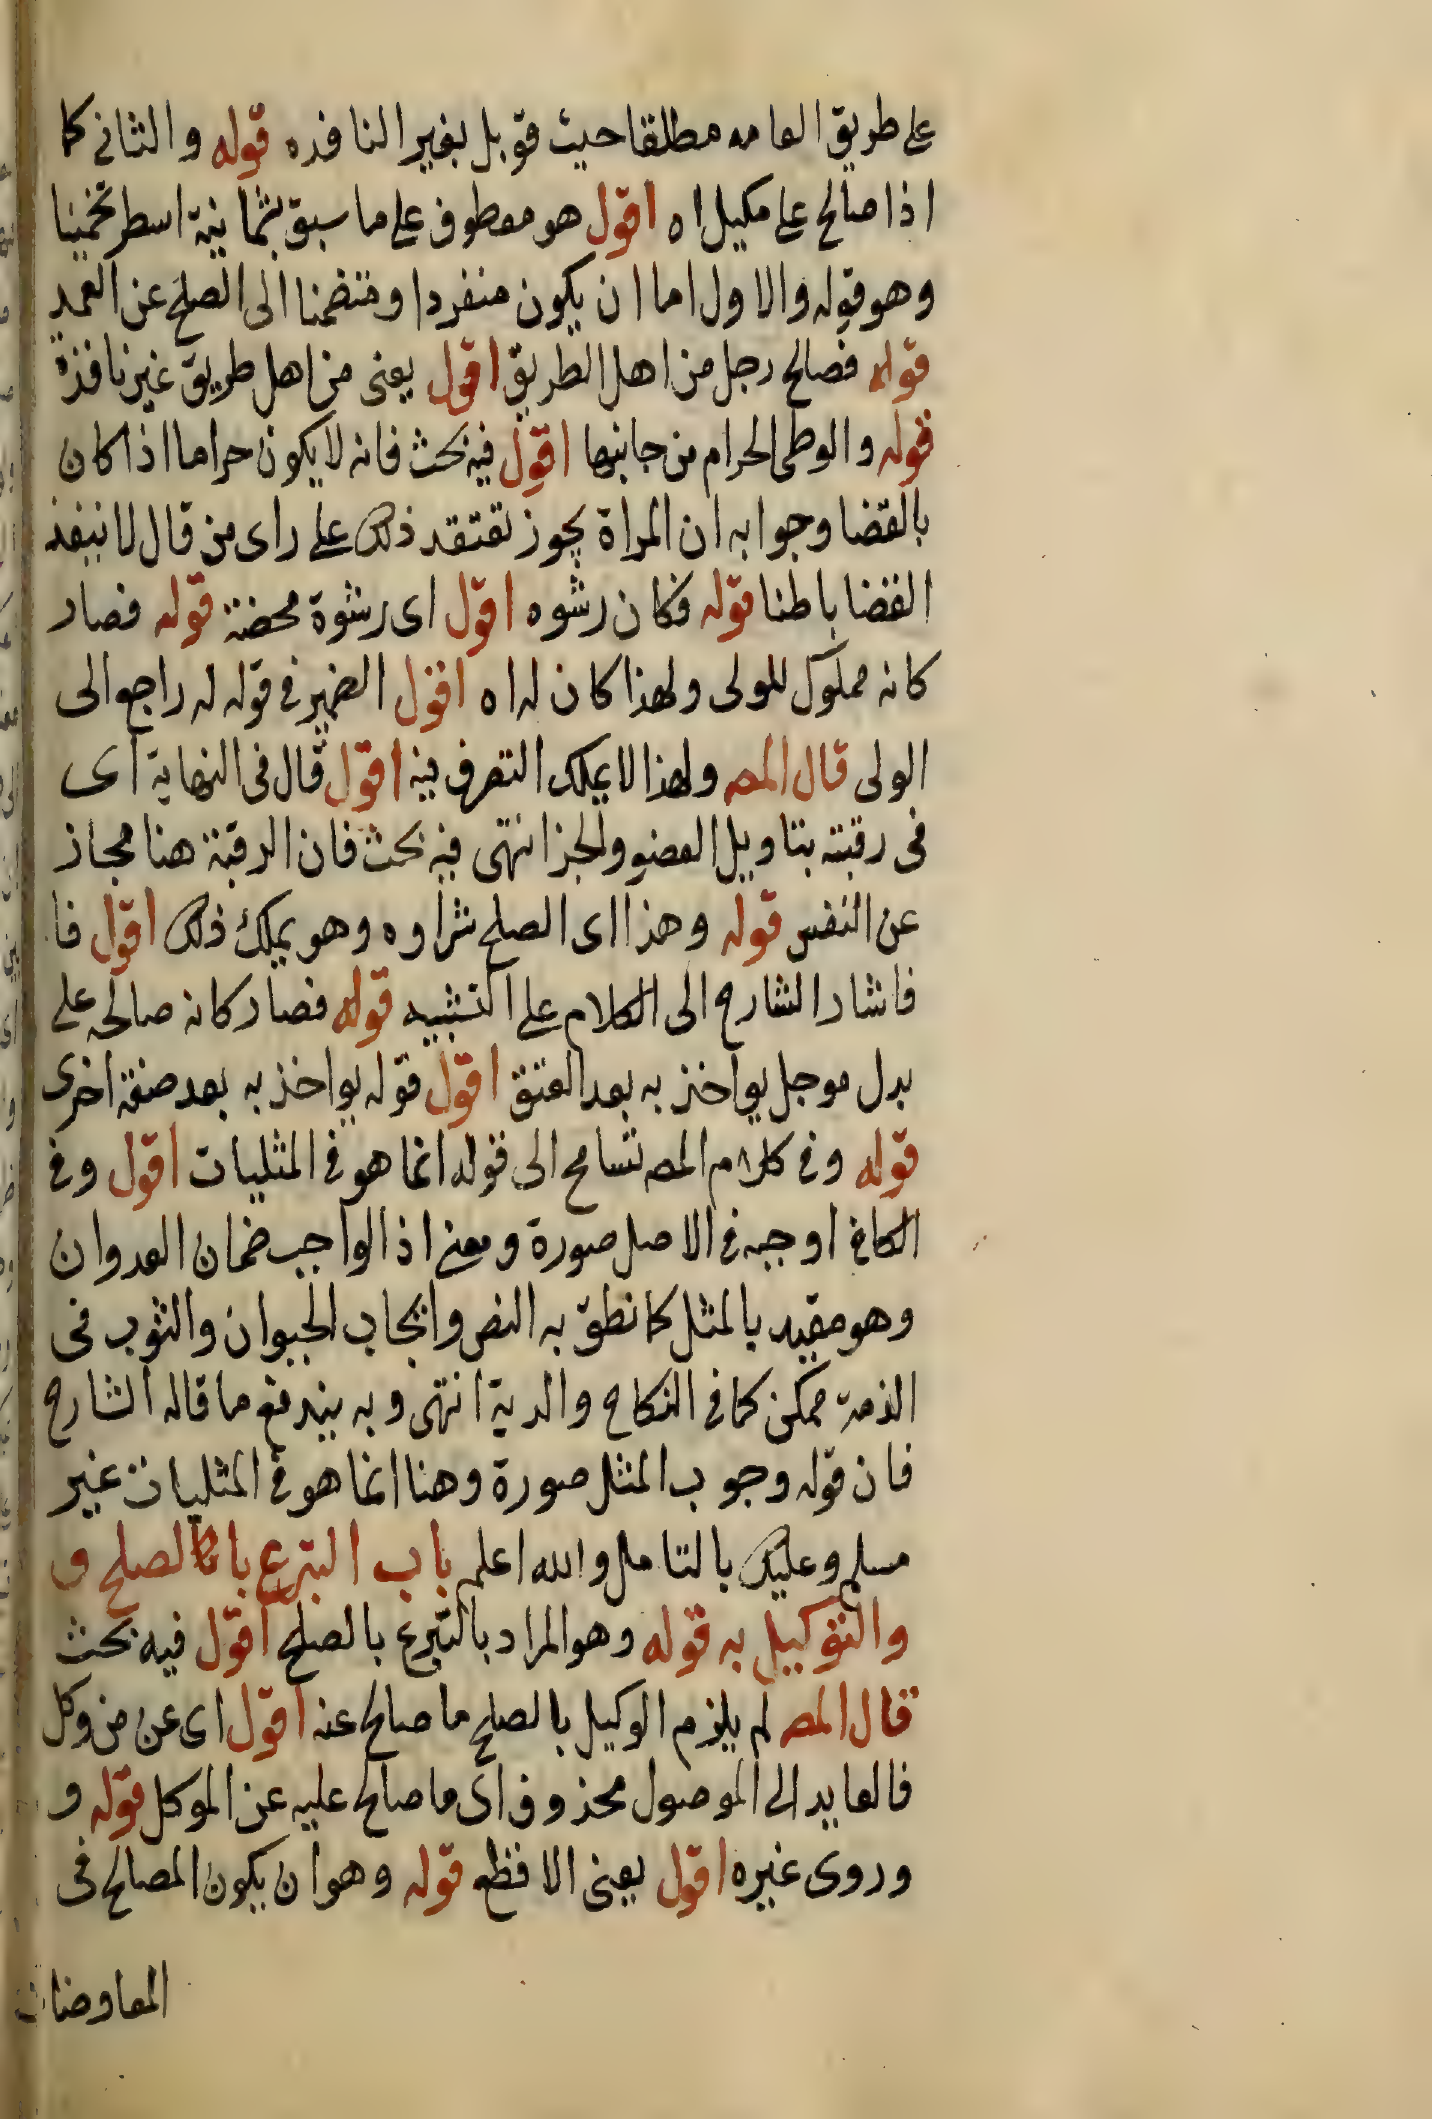 على طريق العامه مطلقا حيث قوبل بغير النافذه قوله والثانى كما
اذا صالح على مكيل اه اقول هو معطوف على ما سبق بثمانية اسطر تخمينا
وهو قوله والاول اما ان يكون منفردا ومنضمنا الى الصلح عن العمد
قوله فصالح رجل من اهل الطريق اقول يعنى من اهل طريق غير نافذة
قوله والوطى الحرام من جانبها اقول فيه بحث فانه لا يكون حراما اذا كان
بالقضا وجوابه ان المراة يجوز تعتقد ذلك على راى من قال لا ينفذ
القضا باطنا قوله فكان رشوه اقول اى رشوة محضة قوله فصار
كانه مملوك للمولى ولهذا كان له اه اقول الضمير فى قوله له راجع الى
الولى قال المص ولهذا لا يملك التصرف فيه اقول قال فى النهاية اى
فى رقبته بتاويل العضو والجزا انتهى فيه بحث فان الرقبة هنا مجاز
عن النفس قوله وهذا اى الصلح شراوه وهو يملك ذلك اقول فا
فاشار الشارح الى الكلام على التشبيه قوله فصار كانه صالحه على
بدل موجل يواخذ به بعد العتق اقول قوله يواخذ به بعد صفة اخرى
قوله وفى كلام المص تسامح الى قوله انما هو فى المثليات اقول وفى
الكافى اوجبه فى الاصل صورة ومعنى اذ الواجب ضمان العدوان
وهو مقيد بالمثل كما نطق به النص وايجاب الحيوان والثوب فى
الذمة ممكن كما فى النكاح والدية انتهى وبه يندفع ما قاله الشارح
فان قوله وجوب المثل صورة وهنا انما هو فى المثليات غير
مسلم وعليك بالتامل والله اعلم باب التبرع بالصلح و
والتوكيل به قوله وهو المراد بالتبرع بالصلح اقول فيه بحث
قال المص لم يلزم الوكيل بالصلح ما صالح عنه اقول اى عن من وكل
فالعايد الى الموصول محذوف اى ما صالح عليه عن الموكل قوله و
وروى غيره اقول يعنى الاقطع قوله وهو ان يكون المصالح فى
المعاوضات